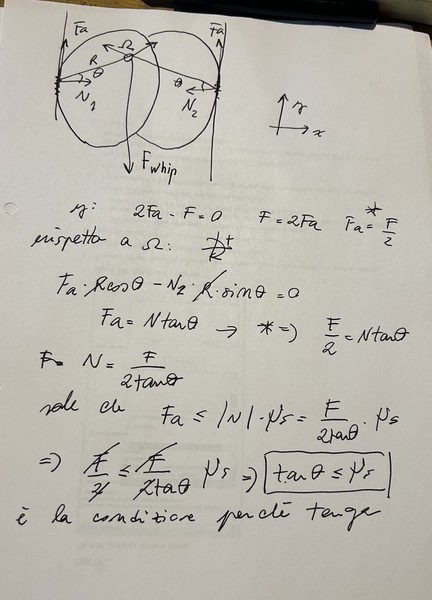 Fa Fa
R Ω
θ θ
N₁ N₂
y
x
Fwhip
y: 2Fa - F = 0 F = 2Fa Fa * = F/2
rispetto a Ω:
Fa · R cosθ - N₂ · R · sinθ = 0
Fa = N tanθ → * ⇒) F/2 = N tanθ
N = F/2tanθ
vale che Fa ≤ |N| · μs = F/2tanθ · μs
⇒) F/2 ≤ F/2tanθ μs ⇒) tanθ ≤ μs
è la condizione perché tenga